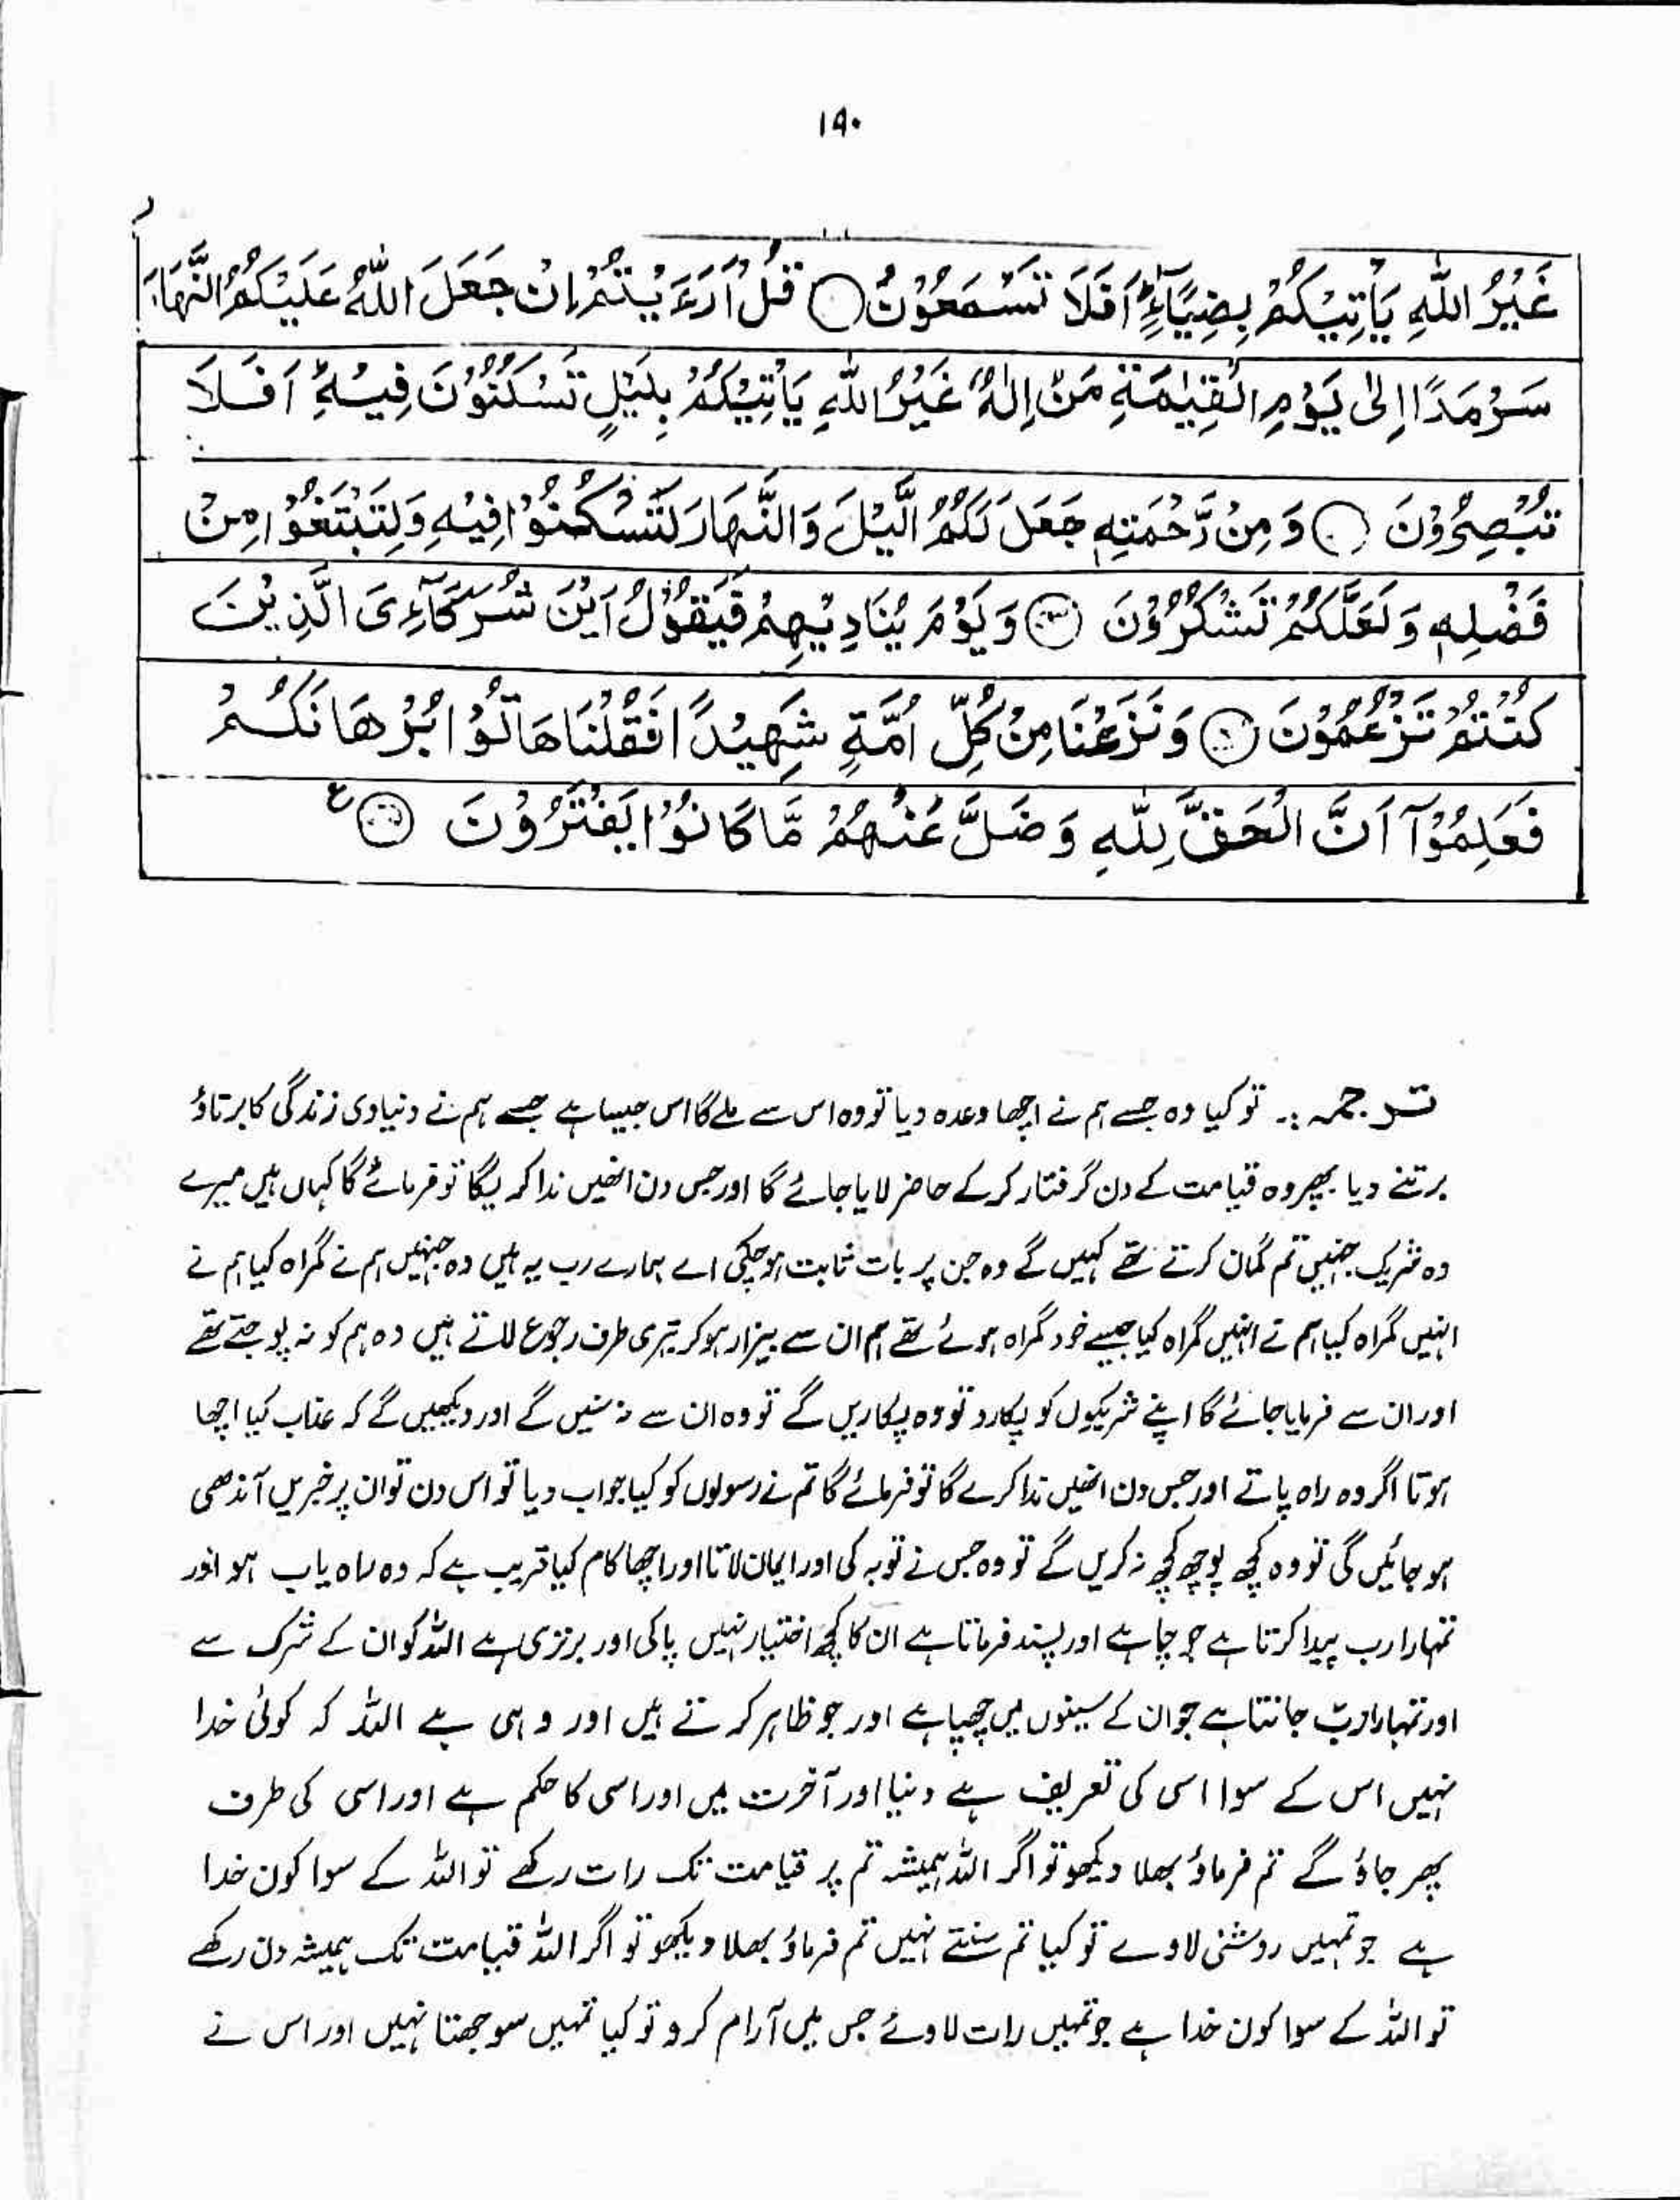 ۱۹۰
غَيْرُ اللّٰهِ يَأْتِيْكُمْ بِضِيَآءٍ ؕ اَفَلَا تَسْمَعُوْنَ ۝ قُلْ اَرَءَيْتُمْ اِنْ جَعَلَ اللّٰهُ عَلَيْكُمُ النَّهَارَ
سَرْمَدًا اِلٰى يَوْمِ الْقِيٰمَةِ مَنْ اِلٰهٌ غَيْرُ اللّٰهِ يَأْتِيْكُمْ بِلَيْلٍ تَسْكُنُوْنَ فِيْهِ ؕ اَفَلَا
تُبْصِرُوْنَ ۝ وَمِنْ رَّحْمَتِهٖ جَعَلَ لَكُمُ الَّيْلَ وَالنَّهَارَ لِتَسْكُنُوْا فِيْهِ وَلِتَبْتَغُوْا مِنْ
فَضْلِهٖ وَلَعَلَّكُمْ تَشْكُرُوْنَ ۝ وَيَوْمَ يُنَادِيْهِمْ فَيَقُوْلُ اَيْنَ شُرَكَآءِىَ الَّذِيْنَ
كُنْتُمْ تَزْعُمُوْنَ ۝ وَنَزَعْنَا مِنْ كُلِّ اُمَّةٍ شَهِيْدًا فَقُلْنَا هَاتُوْا بُرْهَانَكُمْ
فَعَلِمُوْٓا اَنَّ الْحَقَّ لِلّٰهِ وَضَلَّ عَنْهُمْ مَّا كَانُوْا يَفْتَرُوْنَ ۝ ع
ترجمہ :۔ تو کیا وہ جسے ہم نے اچھا وعدہ دیا تو وہ اس سے ملے گا اس جیسا ہے جسے ہم نے دنیاوی زندگی کا برتاؤ
برتنے دیا پھر وہ قیامت کے دن گرفتار کرکے حاضر لایا جائے گا اور جس دن انھیں ندا کریگا تو فرمائے گا کہاں ہیں میرے
وہ شریک جنہیں تم گمان کرتے تھے کہیں گے وہ جن پر بات ثابت ہوچکی اے ہمارے رب یہ ہیں وہ جنہیں ہم نے گمراہ کیا ہم نے
انہیں گمراہ کیا ہم نے انہیں گمراہ کیا جیسے خود گمراہ ہوئے تھے ہم ان سے بیزار ہوکر تیری طرف رجوع لاتے ہیں وہ ہم کو نہ پوجتے تھے
اور ان سے فرمایا جائے گا اپنے شریکوں کو پکارو تو وہ پکاریں گے تو وہ ان سے نہ سنیں گے اور دیکھیں گے کہ عذاب کیا اچھا
ہوتا اگر وہ راہ پاتے اور جس دن انھیں ندا کرے گا تو فرمائے گا تم نے رسولوں کو کیا جواب دیا تو اس دن تو ان پر خبریں آندھی
ہوجائیں گی تو وہ کچھ پوچھ کچھ نہ کریں گے تو وہ جس نے توبہ کی اور ایمان لاتا اور اچھا کام کیا قریب ہے کہ وہ راہ یاب ہو اور
تمہارا رب پیدا کرتا ہے جو چاہے اور پسند فرماتا ہے ان کا کچھ اختیار نہیں پاکی اور برتری ہے اللہ کو ان کے شرک سے
اور تمہارا رب جانتا ہے جو ان کے سینوں میں چھپا ہے اور جو ظاہر کرتے ہیں اور وہی ہے اللہ کہ کوئی خدا
نہیں اس کے سوا اسی کی تعریف ہے دنیا اور آخرت میں اور اسی کا حکم ہے اور اسی کی طرف
پھر جاؤ گے تم فرماؤ بھلا دیکھو تو اگر اللہ ہمیشہ تم پر قیامت تک رات رکھے تو اللہ کے سوا کون خدا
ہے جو تمہیں روشنی لاوے تو کیا تم سنتے نہیں تم فرماؤ بھلا دیکھو تو اگر اللہ قیامت تک ہمیشہ دن رکھے
تو اللہ کے سوا کون خدا ہے جو تمہیں رات لاوے جس میں آرام کرو تو کیا تمہیں سوجھتا نہیں اور اس نے